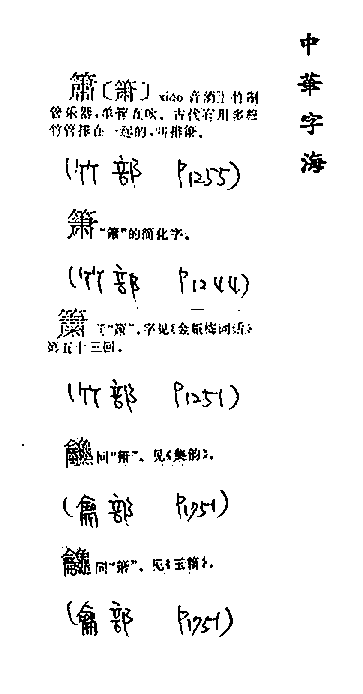 中華字海
簫〔箫〕xiāo 音消 竹制
管乐器,单管直吹。古代有用多根
竹管排在一起的,叫排箫。
(竹部 P1255)
箫 "簫"的简化字。
(竹部 P1244)
同"箫",字见《金瓶梅词话》
第五十三回。
(竹部 P1251)
同"箫"。见《集韵》。
(龠部 P1751)
同"箫"。见《玉篇》。
(龠部 P1751)